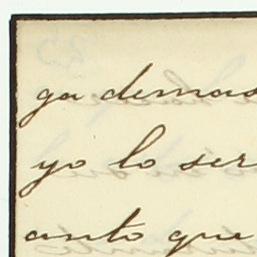 ga demas
yo lo ser
anto que